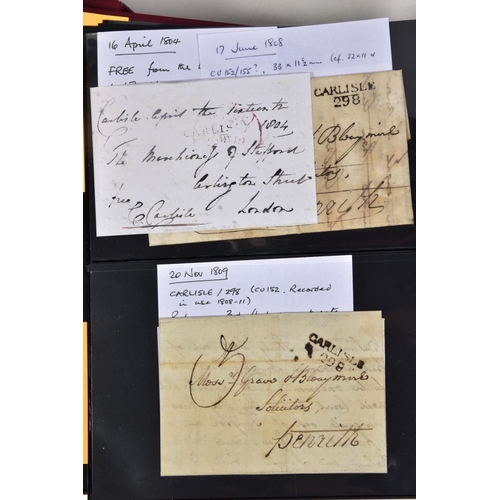 16 April 1804
FREE from the
17 June 1808
CU152/155?, 33 x 11½mm (cf. 32 x 11
Carlisle April the sixteenth
1804
CARLISLE
The Marchioness of Stafford
Arlington Street
London
free
Carlisle
CARLISLE
298
& Bleaymire
Penrith
20 Nov 1809
CARLISLE / 298 (CU152. Recorded
in use 1808-11)
CARLISLE
298
Mess rs Grave & Bleaymire
Solicitors
Penrith